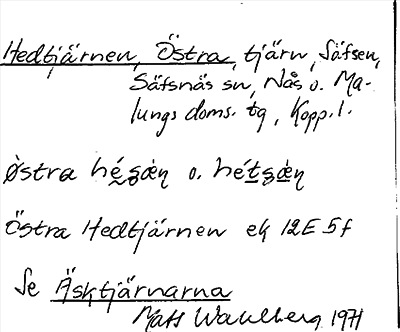 Hedtjärnen, Östra, tjärn, Säfsen,
Säfsnäs sn, Nås o. Ma-
lungs doms. tg, Kopp. l.
Östra Hedtjärnen ek 12E 5f
Se Äsktjärnarna
Mats Wahlberg 1971